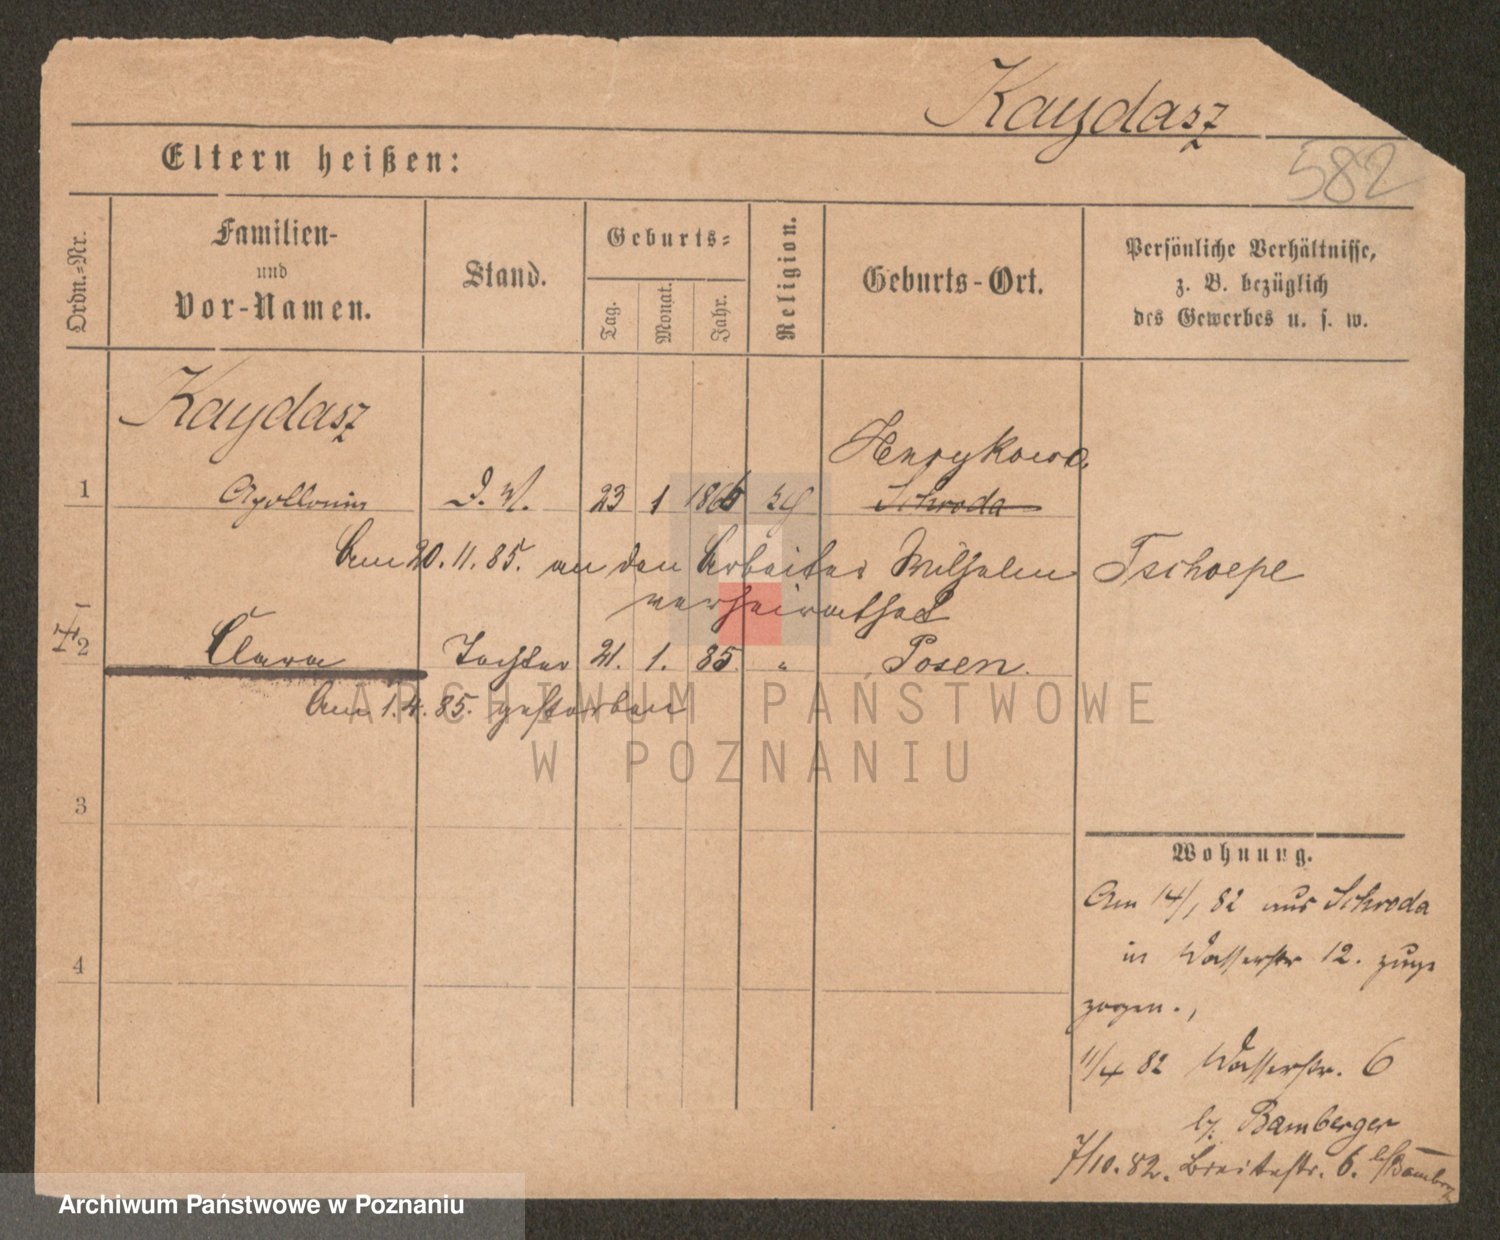 Kaydasz
582
Eltern heißen:
Ordn.-Nr.
Familien-
und
Vor-Namen.
Stand.
Geburts-
Tag.
Monat.
Jahr.
Religion.
Geburts-Ort.
Persönliche Verhältnisse,
z. B. bezüglich
des Gewerbes u. s. w.
Kaydasz
Henrykowo.
1 Apollonia D. M. 23 1 186 Schroda
Am 20.11.85. an den Arbeiter Wilhelm Tschoepe
verheirathet
2 Clara Tochter 21. 1. 85. " Posen.
Am 1.4.85. gestorben
ARCHIWUM PAŃSTWOWE
W POZNANIU
3
4
Wohnung.
Am 14/1 82 aus Schroda
in Wasserstr 12. zuge
zogen.,
11/4 82 Wasserstr. 6
b. Bamberger
7/10.82. Breitestr. 6. b/Bamberg
Archiwum Państwowe w Poznaniu